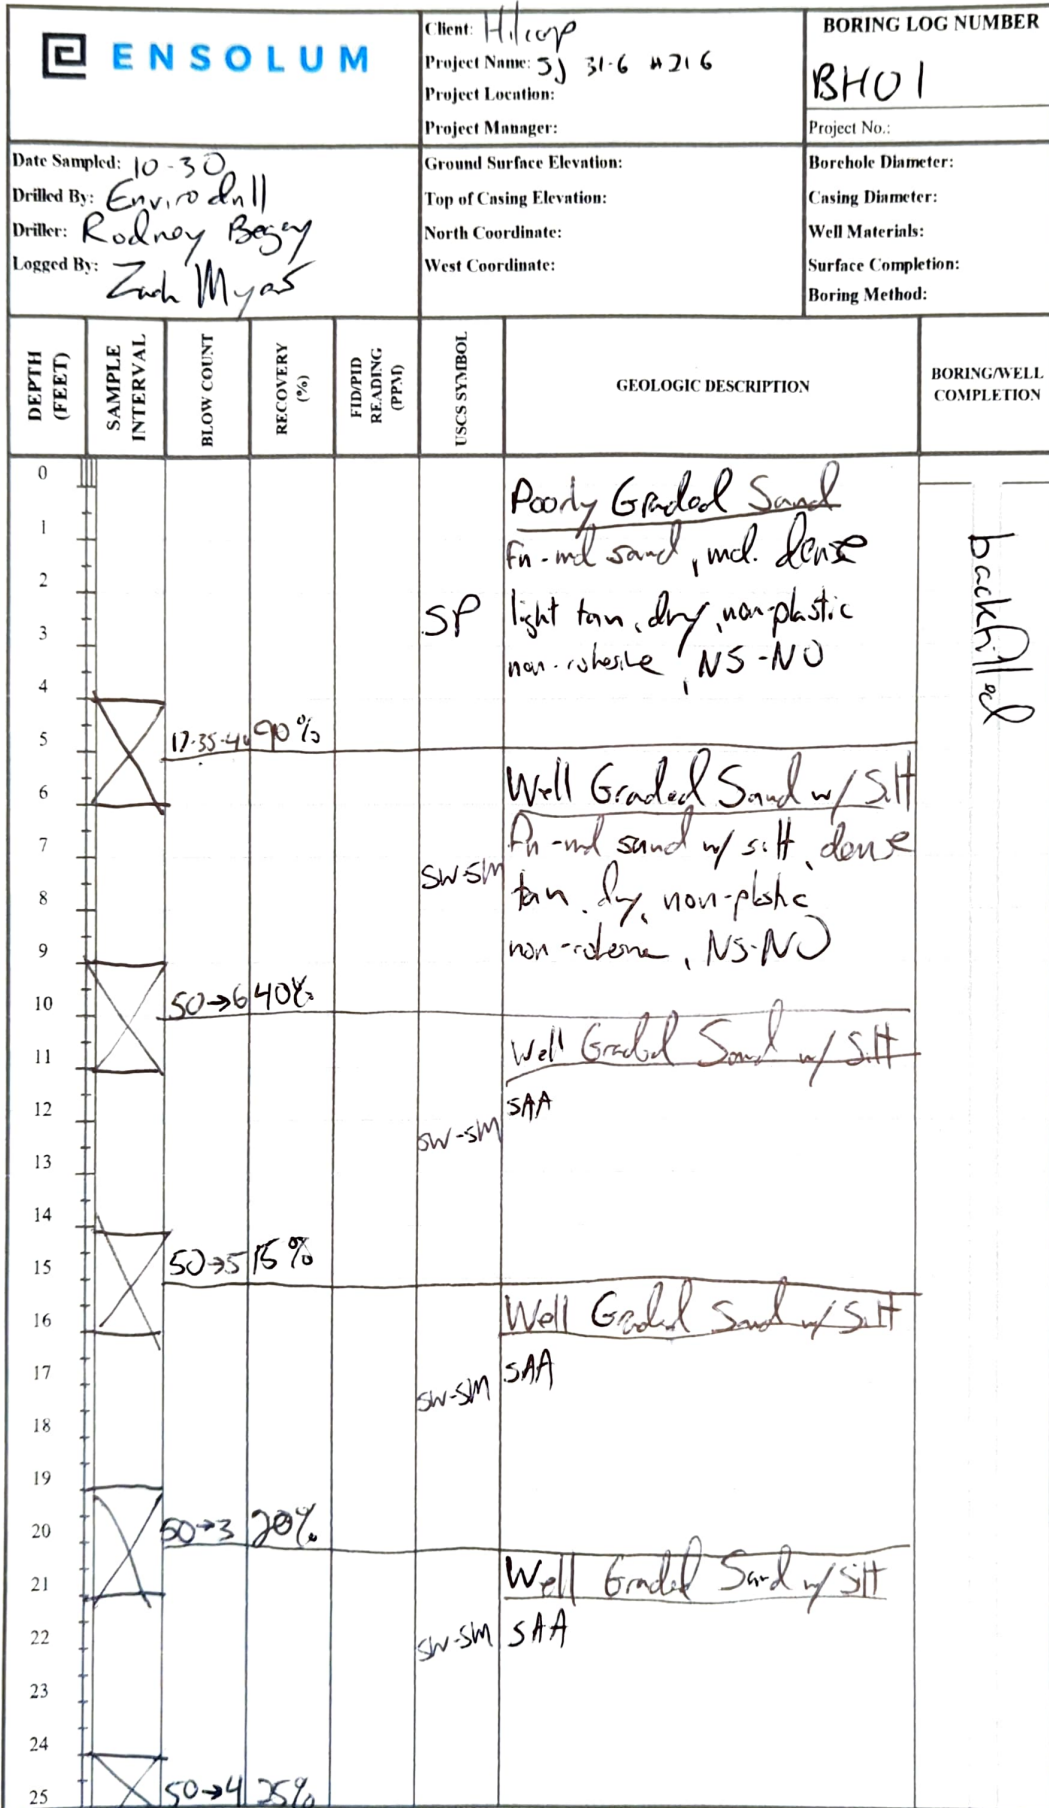 ENSOLUM
Client: Hilcorp
Project Name: SJ 31-6 #216
Project Location:
Project Manager:
BORING LOG NUMBER
BH01
Project No.:
Date Sampled: 10-30
Drilled By: Envirodrill
Driller: Rodney Begay
Logged By: Zach Myers
Ground Surface Elevation:
Top of Casing Elevation:
North Coordinate:
West Coordinate:
Borehole Diameter:
Casing Diameter:
Well Materials:
Surface Completion:
Boring Method:
DEPTH (FEET)
SAMPLE INTERVAL
BLOW COUNT
RECOVERY (%)
FID/PID READING (PPM)
USCS SYMBOL
GEOLOGIC DESCRIPTION
BORING/WELL COMPLETION
0
Poorly Graded Sand
1
fn-md sand, md. dense
backfilled
2
SP light tan, dry, non-plastic
3
non-cohesive, NS-NO
4
5 17-35-40 90%
Well Graded Sand w/ Silt
6
7 fn-md sand w/ silt, dense
SW-SM
8 tan, dry, non-plastic
9 non-cohesive, NS-NO
10 50→6 40%
Well Graded Sand w/ Silt
11
12 SAA
SW-SM
13
14
15 50→5 15%
16 Well Graded Sand w/ Silt
17 SAA
SW-SM
18
19
20 50→3 20%
21 Well Graded Sand w/ Silt
22 SW-SM SAA
23
24
25 50→4 25%